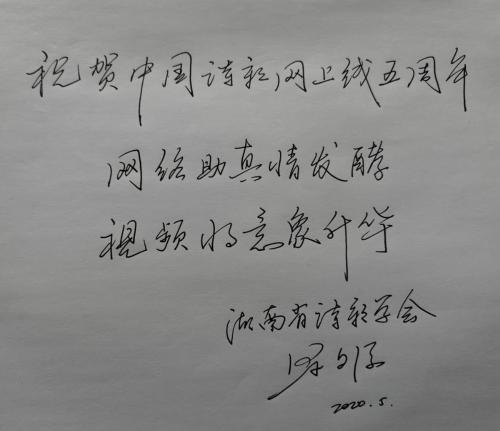 祝贺中国诗歌网上线五周年
网络助真情发酵
视频将意象升华
湖南省诗歌学会
2020.5.